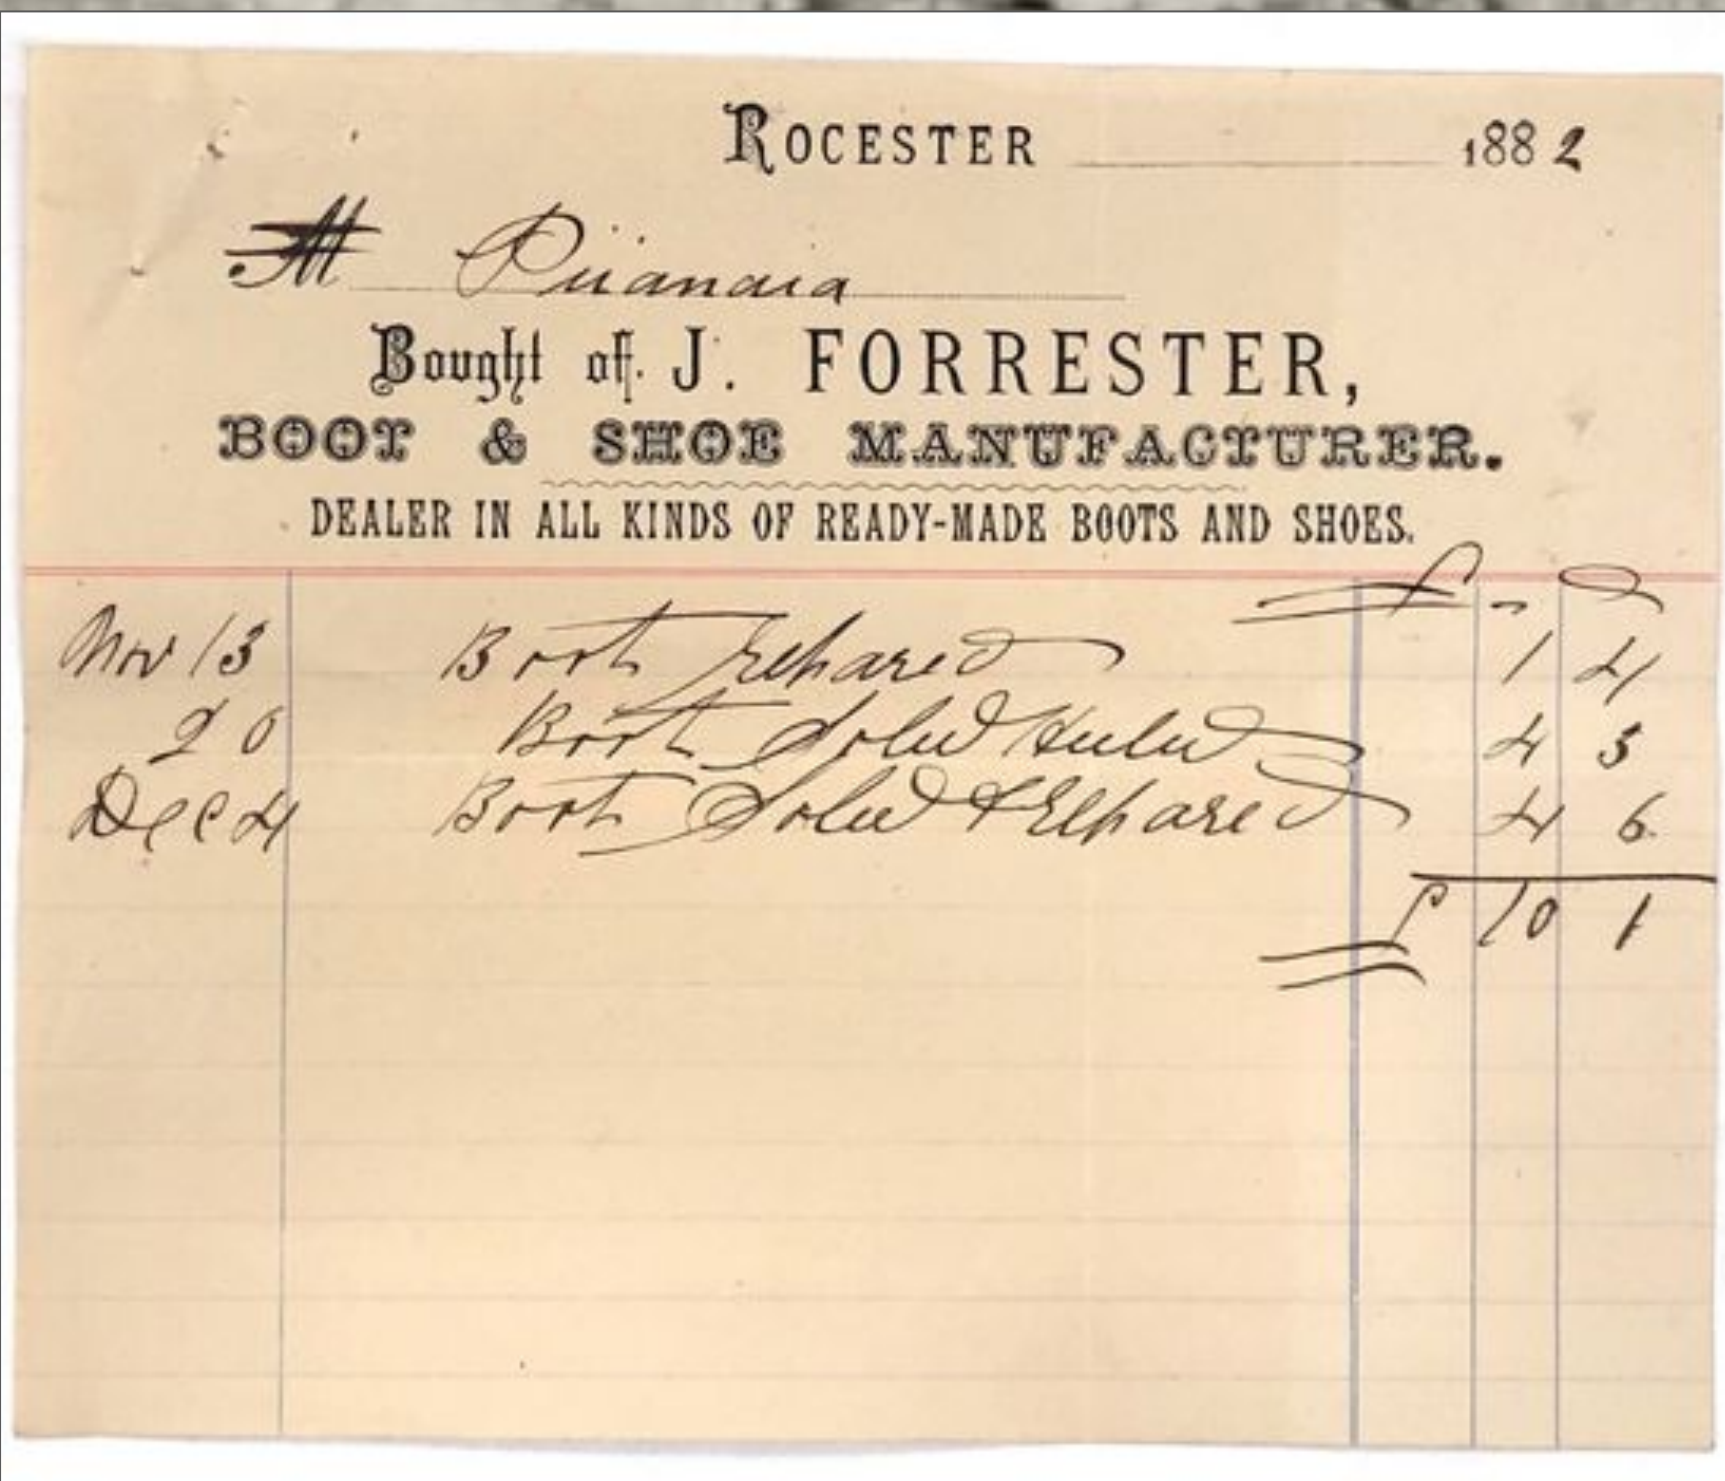 ROCESTER 1882
M
Bought of J. FORRESTER,
BOOT & SHOE MANUFACTURER.
DEALER IN ALL KINDS OF READY-MADE BOOTS AND SHOES.
Nov 13 Boots Repared 1 4
20 Boots Soled Heeled 4 3
Dec 4 Boots Soled & Repared 4 6
10 1